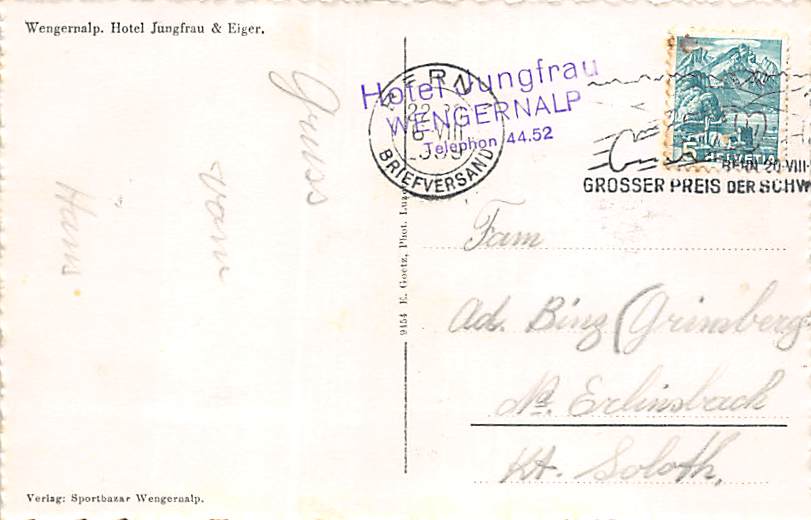 Wengernalp. Hotel Jungfrau & Eiger.
Gruss
vom
Hans.
BERN
22
VIII
BRIEFVERSAND
Hotel Jungfrau
WENGERNALP
Telephon 44.52
5
BERN 20.VIII.
GROSSER PREIS DER SCHW
9454 E. Goetz, Phot. Luze
Fam
Ad. Binz (Grinsberg
Nd. Erlinsbach
Kt. Soloth.
Verlag: Sportbazar Wengernalp.